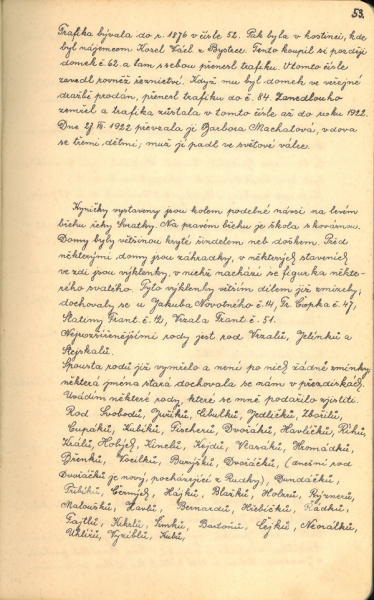 53.
Trafika bývala do r. 1876 v čísle 52. Pak byla v hostinci, kde
byl nájemcem Karel Kácl z Bystrce. Tento koupil si později
domek č. 62. a tam s sebou přenesl trafiku. V tomto čísle
zavedl rovněž řeznictví. Když mu byl domek ve veřejné
dražbě prodán, přenesl trafiku do č. 84. Zanedlouho
zemřel a trafika zůstala v tomto čísle až do roku 1922.
Dne 27. VI. 1922 převzala ji Barbora Machatová, vdova
se třemi dětmi; muž jí padl ve světové válce.
Kyničky vystaveny jsou kolem podélné návsi na levém
břehu řeky Svratky. Na pravém břehu je škola s kovárnou.
Domy byly většinou kryté šindelem neb doškem. Před
některými domy jsou zahrádky, v některých staveních
ve zdi jsou výklenky, v nichž nachází se figurka někte-
rého svatého. Tyto výklenky větším dílem již zmizely;
dochovaly se u Jakuba Novotného č. 14, Fr. Čopka č. 47,
Slatiny Frant. č. 12, Vrzala Frant č. 51.
Nejrozšířenějšími rody jest rod Vrzalů, Jelínků a
Stejskalů.
Spousta rodů již vymřelo a není po nich žádné zmínky,
některá jména stará dochovala se nám v přezdívkách.
Uvádím některé rody, které se mně podařilo zjistiti.
Rod Svobodů, Juříků, Cibulků, Jedličků, Zbořilů,
Čupáků, Kubíků, Fischerů, Dvořáků, Havlíčků, Říhů,
Králů, Hobých, Kinclů, Kejdů, Vlasáků, Hromádků,
Dřínků, Vocilků, Buryšků, Dvořáčků, (dnešní rod
Dvořáčků je nový, pocházející z Rudky), Dundáčků,
Přibíků, Černých, Hájků, Blažků, Holerů, Ryznerů,
Maloušků, Havlů, Bernardů, Hřebíčků, Řádků,
Fajtlů, Kekrlů, Šimků, Bartoňů, Cejků, Navrátilů,
Uhlířů, Vyziblů, Kubů,